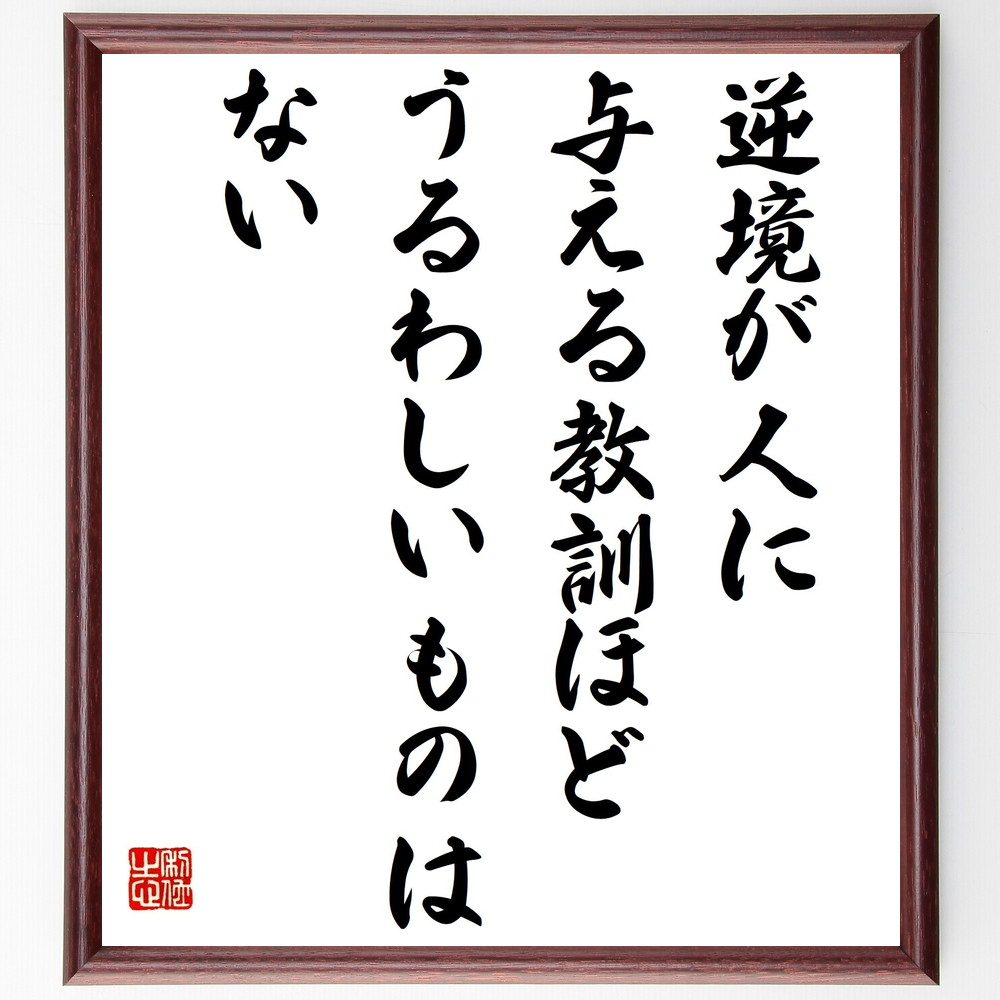 逆境が人に
与える教訓ほど
うるわしいものは
ない